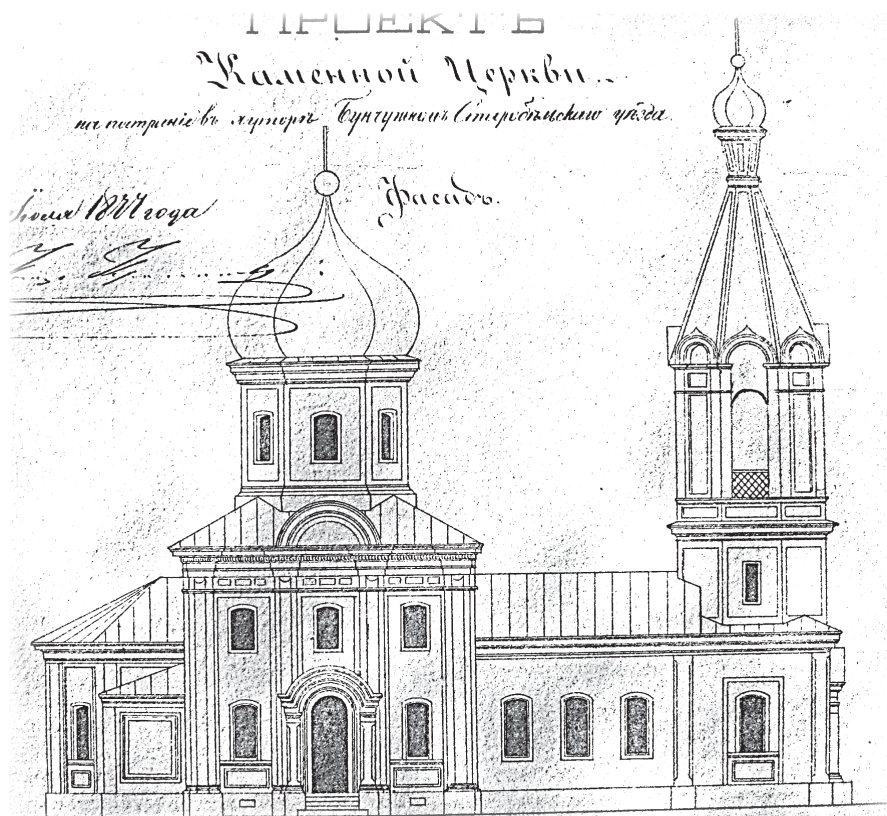 ПРОЕКТЪ
Каменной Церкви
на построніе въ хуторѣ Бунчужномъ Старобѣльскаго уѣзда.
Фасадъ.
Іюля 1877 года